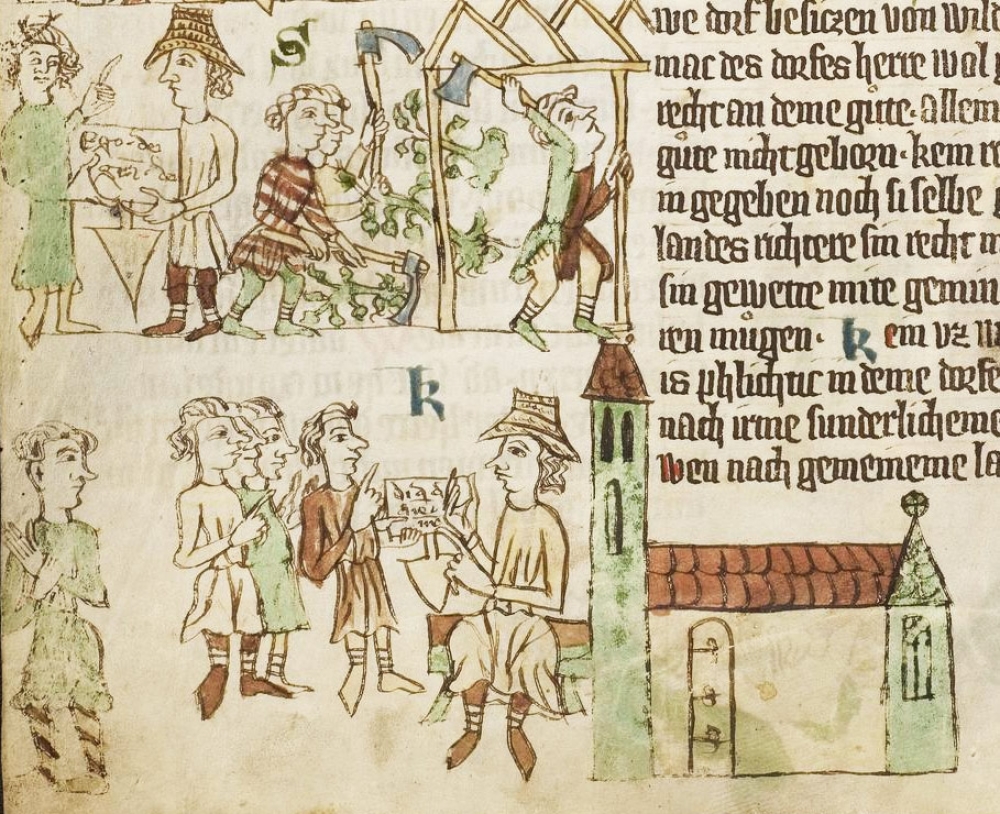 S
Ego·de
k
we dorf besiczen von
mac des dorfes herre wol
recht an deme gůte· allein
gůte nicht geborn· kem
in gegeben noch si selbe
landes richtere sin recht
sin gewette mite
ren můgen· kem vz
is phlichtic in deme
nach irme sunderlicheme
wen nach gemeineme